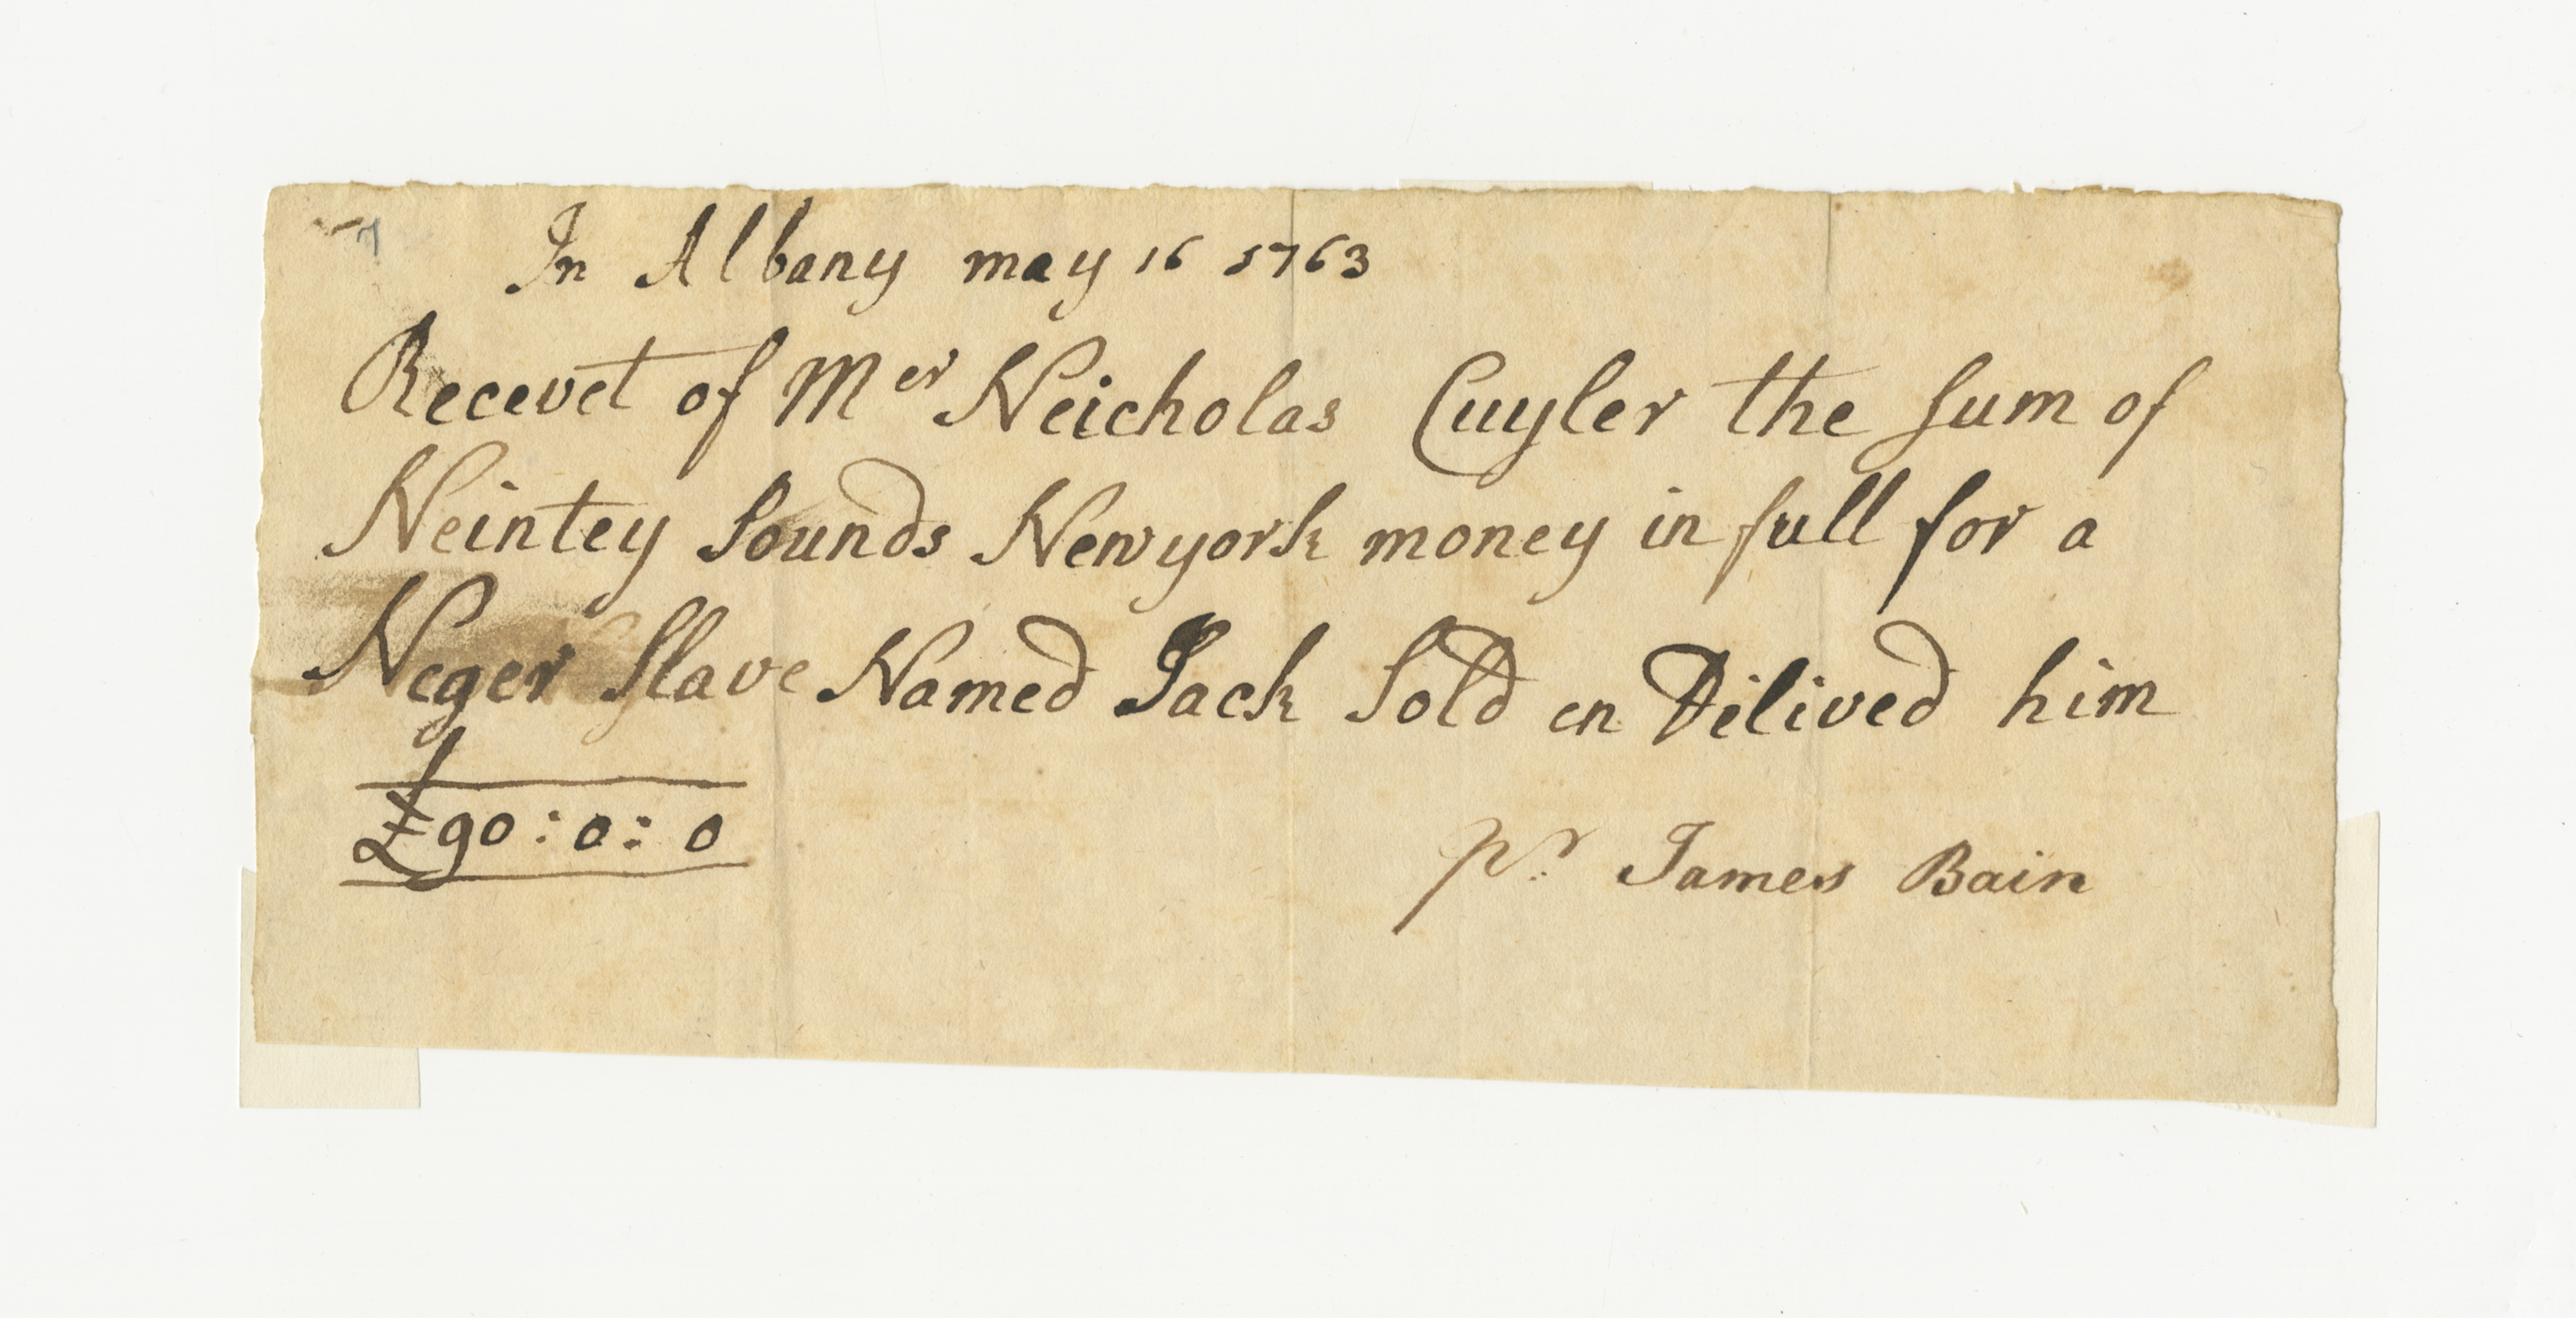 In Albany may 16 1763
Recevet of Mer Neicholas Cuyler the Sum of
Neintey Pounds Newyork money in full for a
Neger Slave Named Jack Sold en Delived him
£90:0:0
pr. James Bain